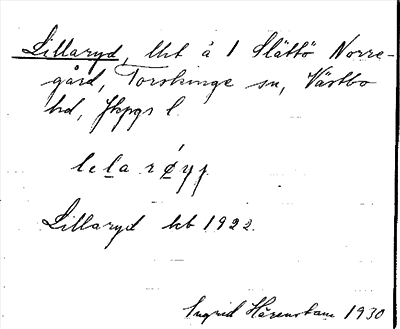 Lillaryd, lht å 1 Slättö Norre-
gård, Torskinge sn, Västbo
hd, Jkpgs l.
lela røyj
Lillaryd kb 1922.
Ingrid Hårenstam 1930